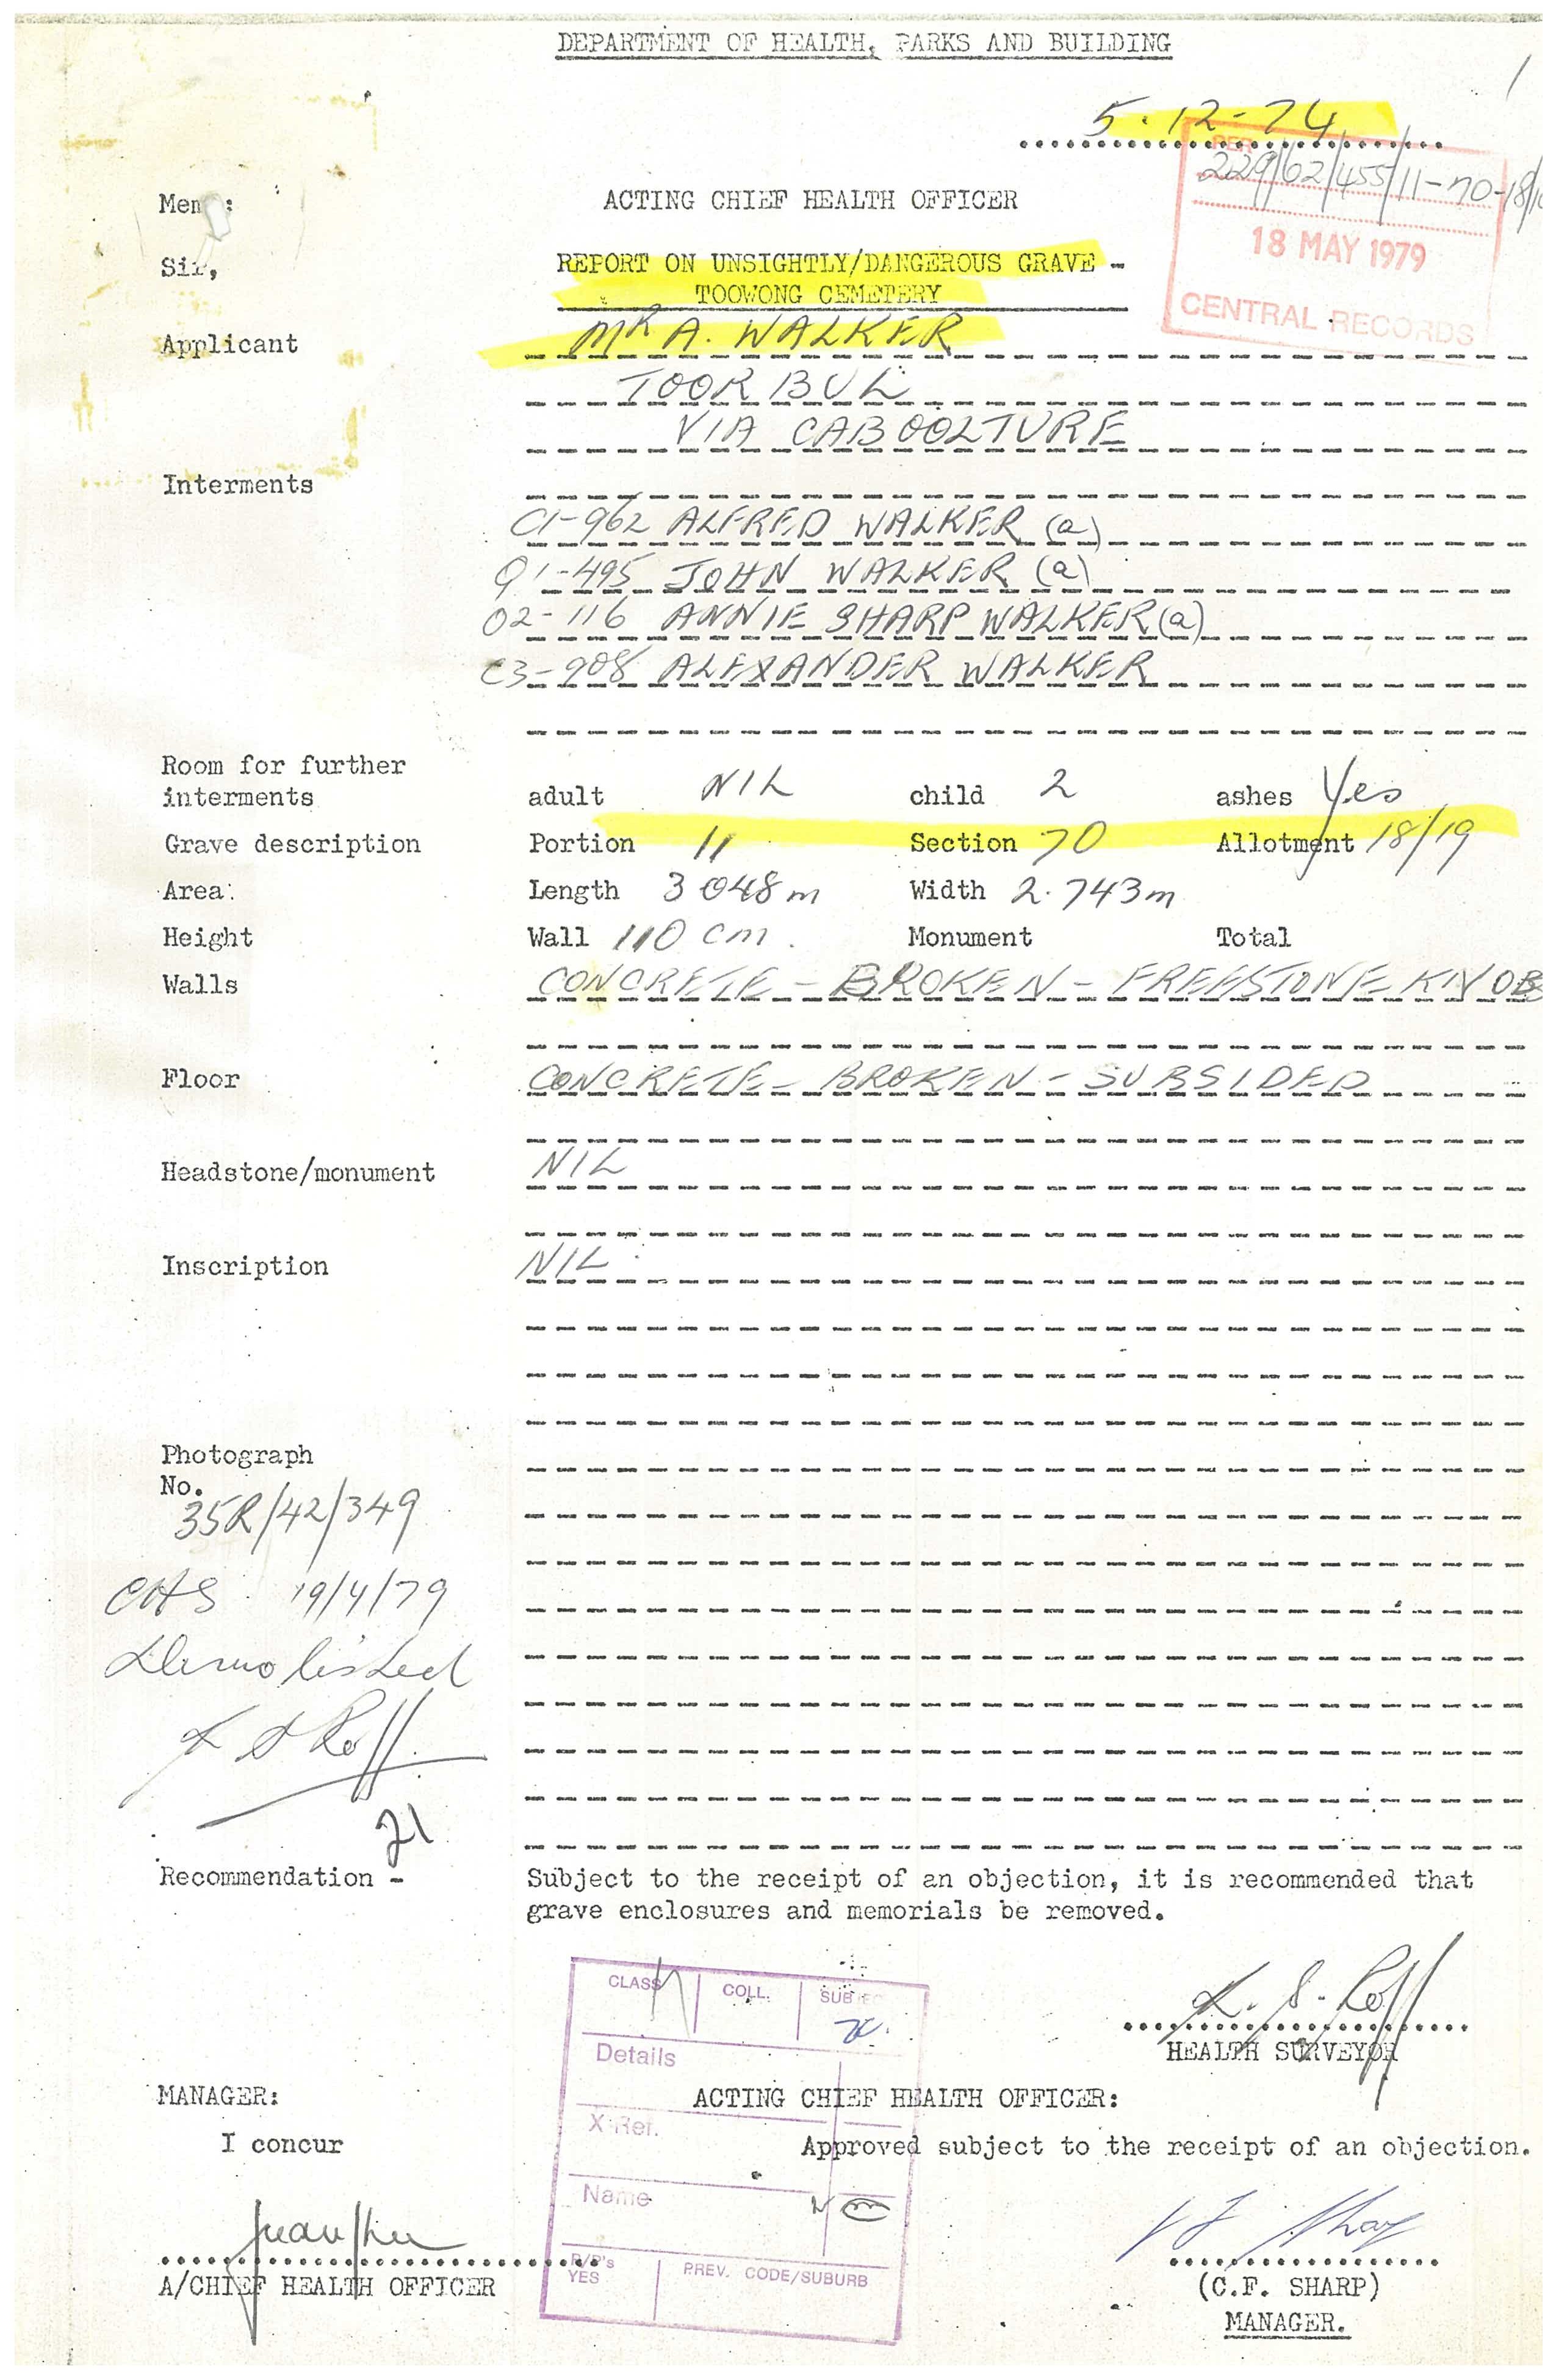 DEPARTMENT OF HEALTH, PARKS AND BUILDING
5.12-74
PER
229/62/455/11-70-18/
18 MAY 1979
CENTRAL RECORDS
Memo: ACTING CHIEF HEALTH OFFICER
Sir, REPORT ON UNSIGHTLY/DANGEROUS GRAVE -
TOOWONG CEMETERY
Applicant MR A. WALKER
TOORBUL
VIA CABOOLTURE
Interments
C1-962 ALFRED WALKER (a)
Q1-495 JOHN WALKER (a)
02-116 ANNIE SHARP WALKER (a)
C3-908 ALEXANDER WALKER
Room for further
interments adult NIL child 2 ashes Yes
Grave description Portion 11 Section 70 Allotment 18/19
Area: Length 3 048m Width 2.743m
Height Wall 110 cm. Monument Total
Walls CONCRETE - BROKEN - FREESTONE KNOBS
Floor CONCRETE - BROKEN - SUBSIDED
Headstone/monument NIL
Inscription NIL
Photograph
No.
35R/42/349
CHS 19/4/79
Demolished
21
Recommendation - Subject to the receipt of an objection, it is recommended that
grave enclosures and memorials be removed.
CLASS COLL. SUBJEC
HEALTH SURVEYOR
Details
MANAGER: ACTING CHIEF HEALTH OFFICER:
X-Ref.
I concur Approved subject to the receipt of an objection.
Name
R/P's
YES PREV. CODE/SUBURB
A/CHIEF HEALTH OFFICER (C.F. SHARP)
MANAGER.